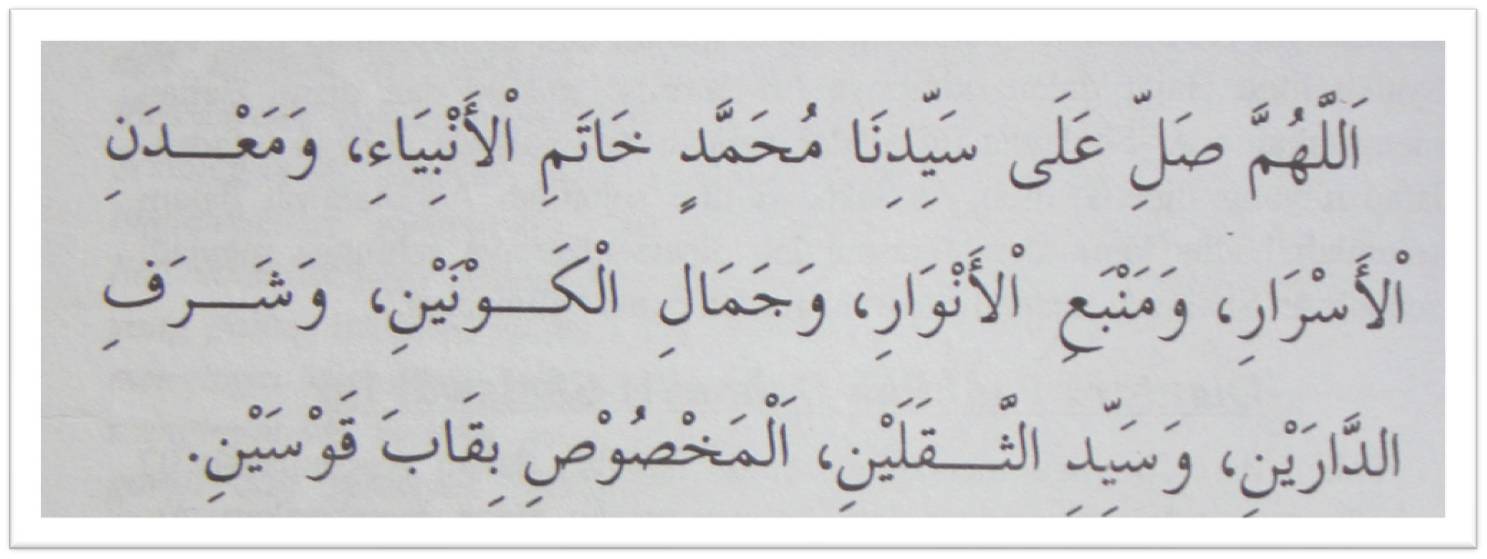 اَللَّهُمَّ صَلِّ عَلَى سَيِّدِنَا مُحَمَّدٍ خَاتَمِ الْأَنْبِيَاءِ، وَمَعْـــدَنِ
الْأَسْرَارِ، وَمَنْبَعِ الْأَنْوَارِ، وَجَمَالِ الْكَـــوْنَيْنِ، وَشَـــرَفِ
الدَّارَيْنِ، وَسَيِّدِ الثَّـــقَلَيْنِ، اَلْمَخْصُوْصِ بِقَابَ قَوْسَيْنِ.